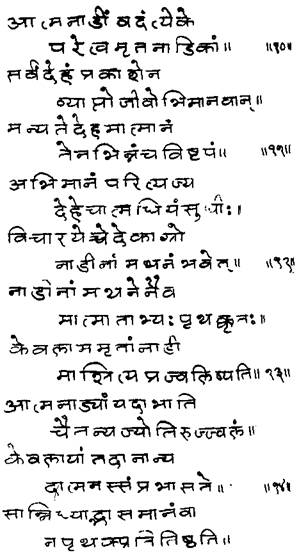 आत्मनाडीं वदंत्येके
परेत्वमृतनाडिकां॥ ॥१०॥
सर्वदेहंप्रकाशेन
व्याप्तोजीवोभिमानवान्॥
मन्यतेदेहमात्मानं
तेनभिन्नंचविष्टपं॥ ॥११॥
अभिमानं परित्यज्य
देहेचात्मधियंसुधीः।
विचारयेच्चेदेकाग्रो
नाडीनां मथनंभवेत्॥ ॥१२॥
नाडीनां मथनेनैव
मात्माताभ्यः पृथक्कृतः॥
केवलाममृतांनाडी
माश्रित्यप्रज्वलिष्यति॥१३॥
आत्मनाड्यांयदाभाति
चैतन्यज्योतिरुज्ज्वलं॥
केवलायांतदानान्य
दात्मनस्संप्रभासते॥ ॥१४॥
सान्निध्याद्भासमानंवा
नपृथक्प्रतितिष्ठति॥